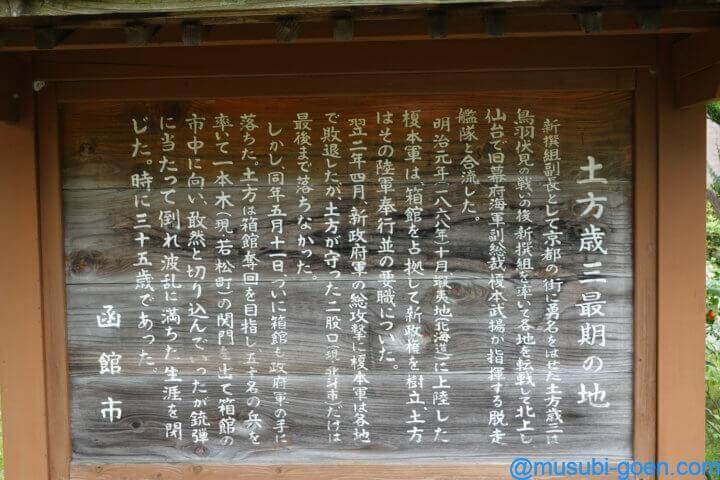 土方歳三最期の地
新撰組副長として京都の街に勇名をはせた土方歳三は
鳥羽伏見の戦いの後、新撰組を率いて各地を転戦して北上し
仙台で旧幕府海軍副総裁榎本武揚が指揮する脱走
艦隊と合流した。
明治元年(一八六八年)十月、蝦夷地(北海道)に上陸した
榎本軍は、箱館を占拠して新政権を樹立、土方
はその陸軍奉行並の要職についた。
翌二年四月、新政府軍の総攻撃に榎本軍は各地
で敗退したが、土方が守った二股口(現・北斗市)だけは
最後まで落ちなかった。
しかし、同年五月十一日、ついに箱館も政府軍の手に
落ちた。土方は箱館奪回を目指し、五十名の兵を
率いて一本木(現・若松町)の関門を出て箱館の
市中に向い、敢然と切り込んでいったが、銃弾
に当たって倒れ、波乱に満ちた生涯を閉
じた。時に三十五歳であった。
函館市
@musubi-goen.com